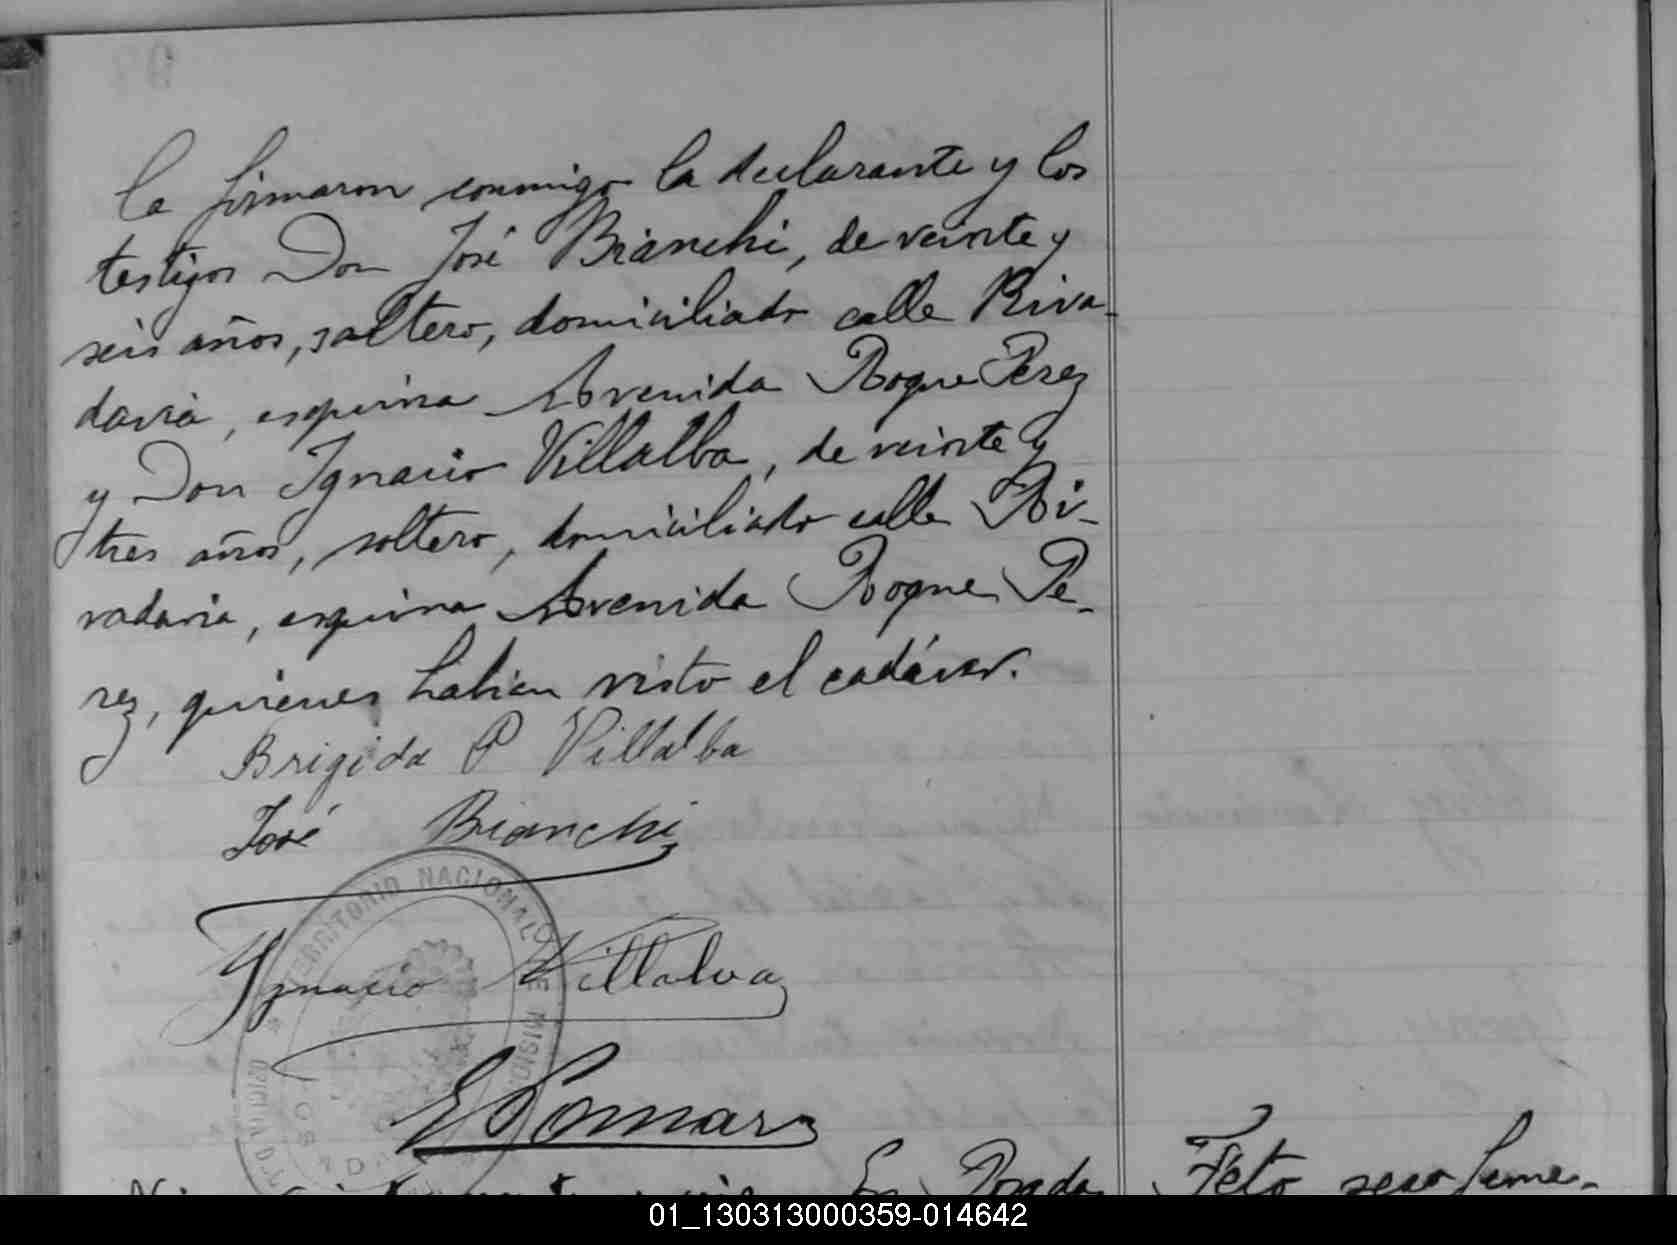 la firmaron conmigo la declarante y los
testigos Don José Bianchi, de veinte y
seis años, soltero, domiciliado calle Riva-
davia, esquina Avenida Roque Perez
y Don Ignacio Villalba, de veinte y
tres años, soltero, domiciliado calle Ri-
vadavia, esquina Avenida Roque Pe-
rez, quienes habian visto el cadáver.
Brigida P Villalba
José Bianchi
TERRITORIO NACIONAL DE MISIONES
Ignacio Villalva
E Pomar
En Posadas
Feto sexo feme-
01_130313000359-014642